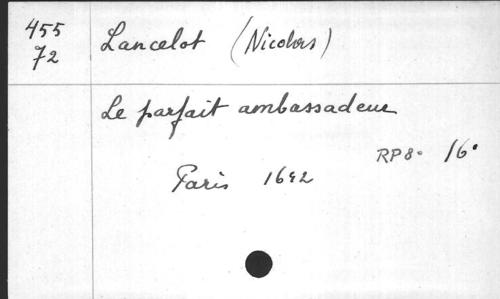 455
72
Lancelot (Nicolas)
Le parfait ambassadeur
RP 8° 16°
Paris 1642